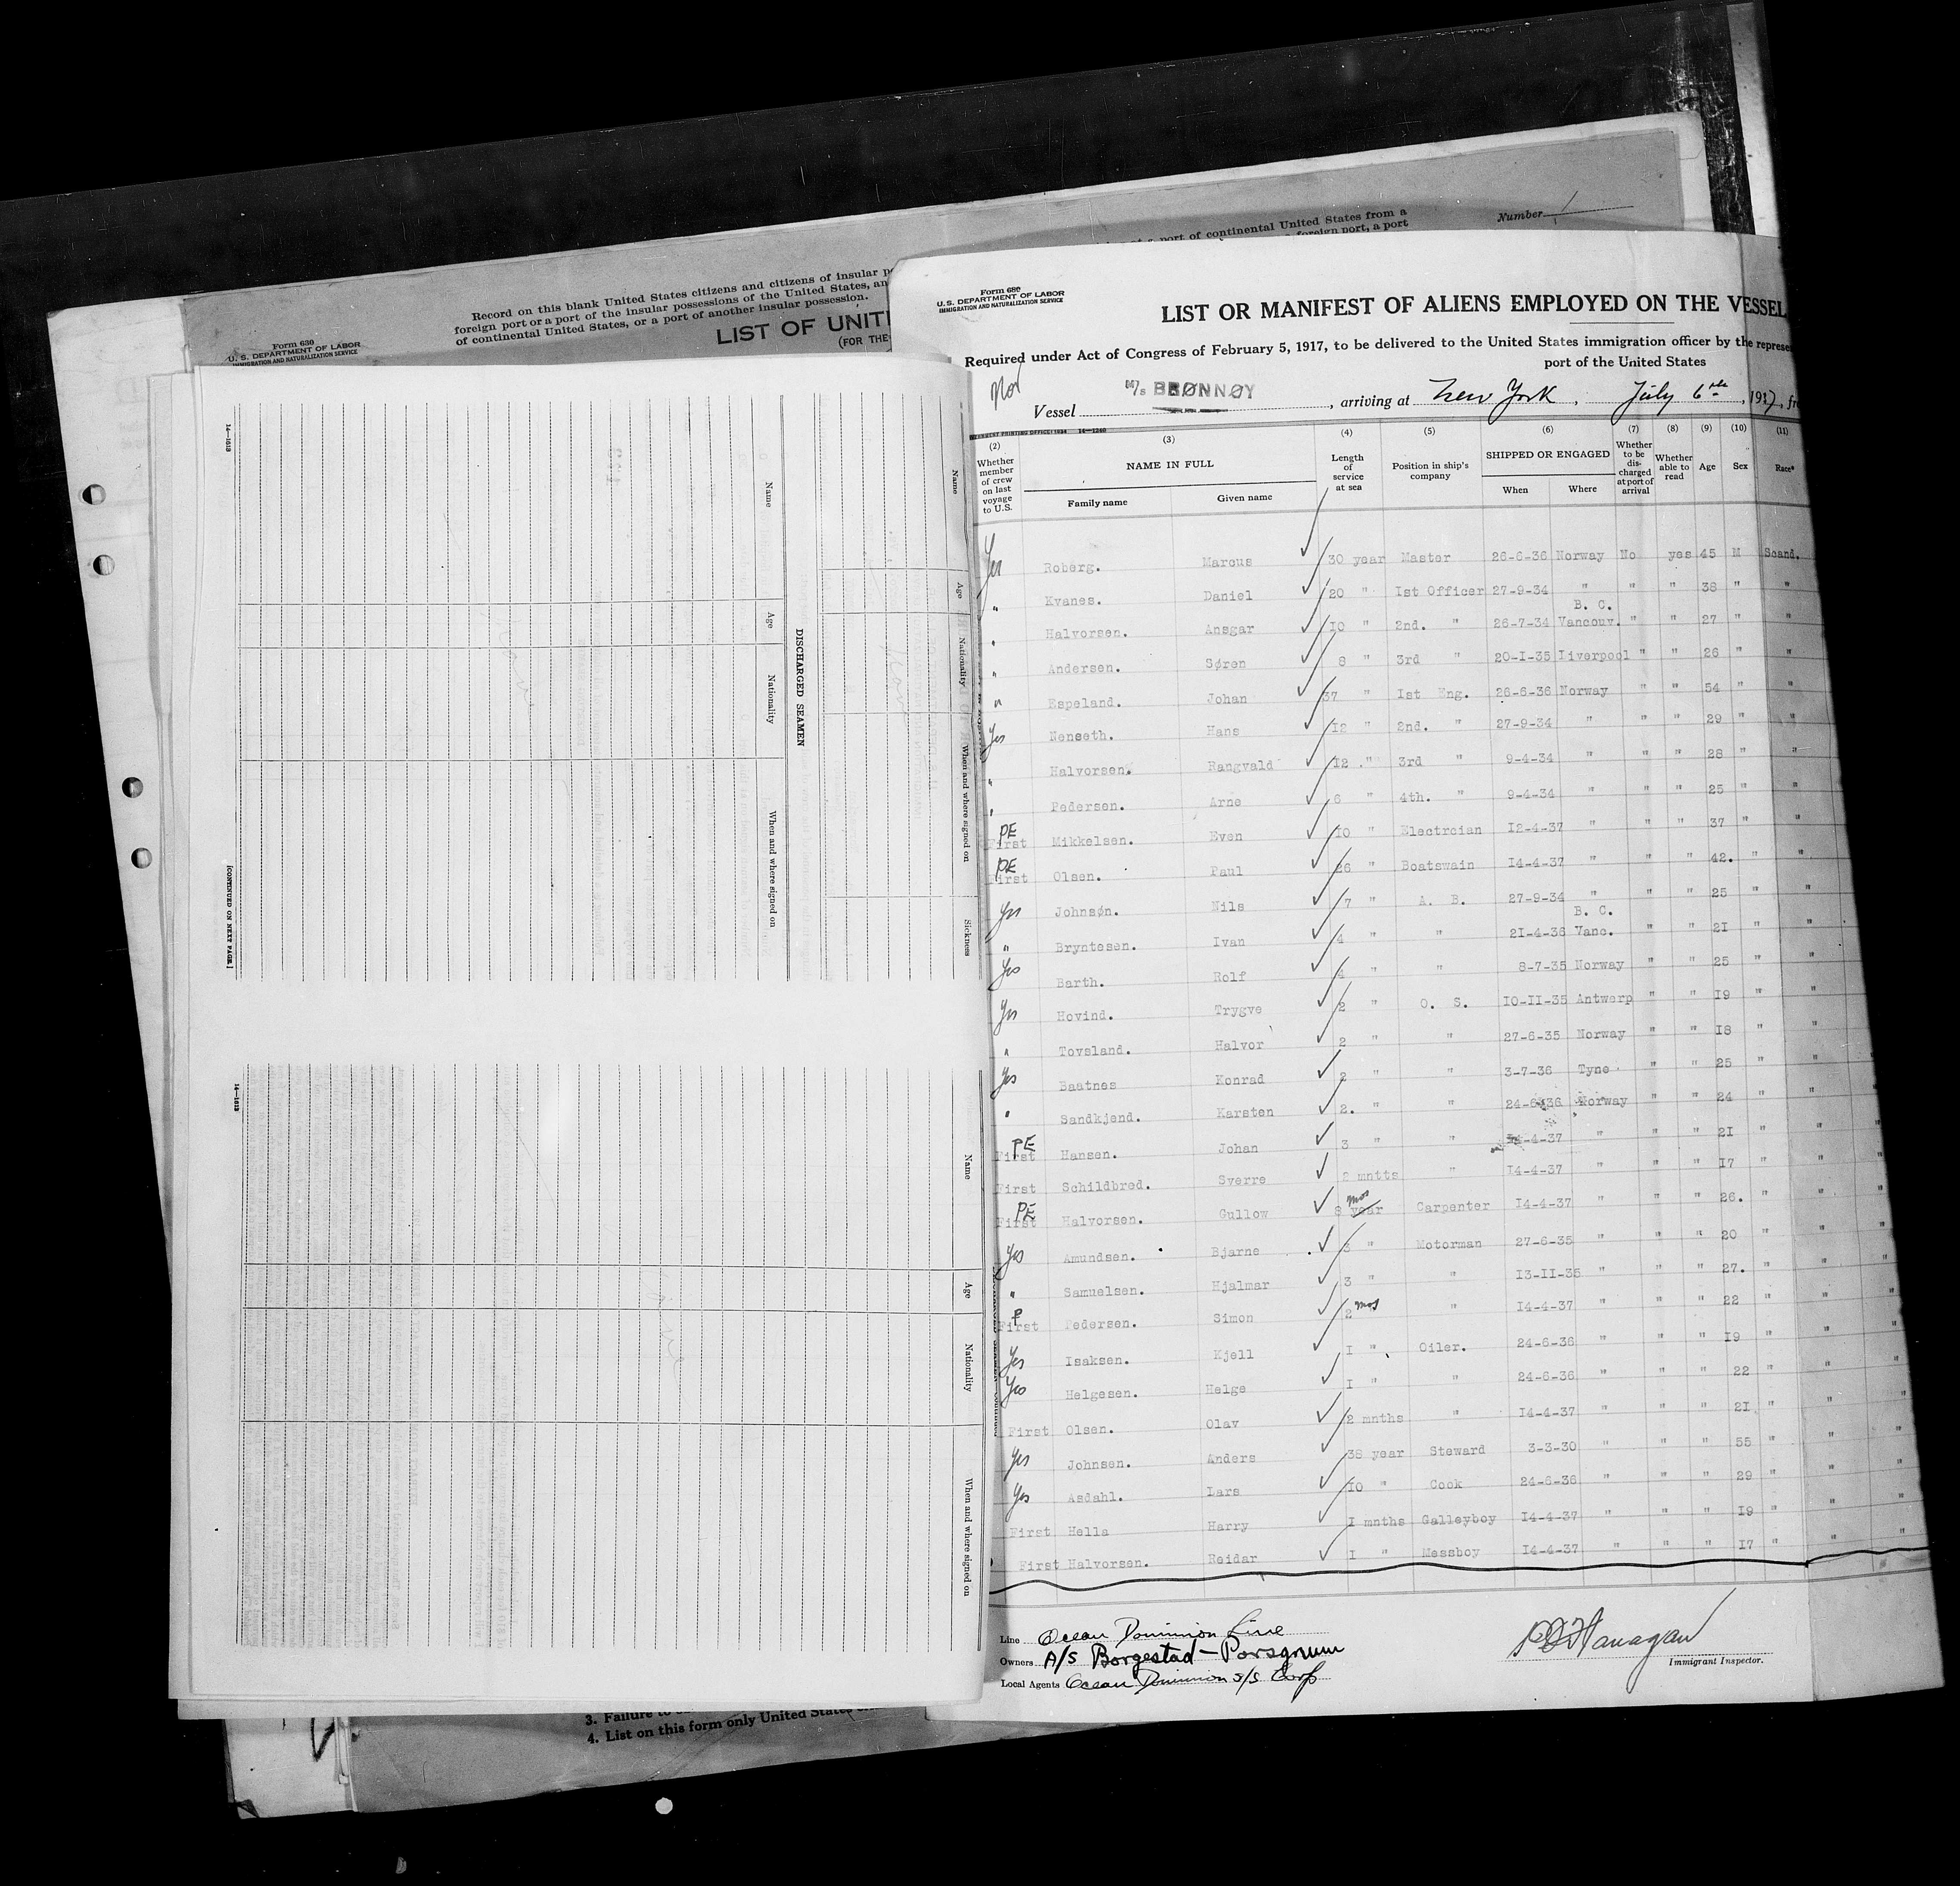 Number 1
port of continental United States from a
foreign port, a port
Record on this blank United States citizens and citizens of insular
foreign port or a port of the insular possessions of the United States, an
of continental United States, or a port of another insular possession.
Form 630
U. S. DEPARTMENT OF LABOR
IMMIGRATION AND NATURALIZATION SERVICE
LIST OF UNIT
(FOR THE
14—1513
Name
Age
Nationality
When and where signed on
Sickness
DISCHARGED SEAMEN
Name
Age
Nationality
When and where signed on
[CONTINUED ON NEXT PAGE]
14—1513
Name
Age
Nationality
When and where signed on
3. Failure to
4. List on this form only United States
Form 680
U.S. DEPARTMENT OF LABOR
IMMIGRATION AND NATURALIZATION SERVICE
LIST OR MANIFEST OF ALIENS EMPLOYED ON THE VESSEL
Required under Act of Congress of February 5, 1917, to be delivered to the United States immigration officer by the represe
port of the United States
Nor
Vessel M/s BRØNNØY, arriving at New York, July 6th, 1937, fr
14—1240
(2) (3) (4) (5) (6) (7) (8) (9) (10) (11)
Whether member of crew on last voyage to U.S.
NAME IN FULL
Family name Given name
Length of service at sea
Position in ship's company
SHIPPED OR ENGAGED
When Where
Whether to be discharged at port of arrival
Whether able to read
Age
Sex
Race*
Yes Roberg. Marcus 30 year Master 26-6-36 Norway No yes 45 M Scand.
" Kvanes. Daniel 20 " Ist Officer 27-9-34 " " " 38 " "
" Halvorsen. Ansgar IO " 2nd. " 26-7-34 B. C. Vancouv. " " 27 " "
" Andersen. Søren 8 " 3rd " 20-I-35 Liverpool " " 26 " "
" Espeland. Johan 37 " Ist Eng. 26-6-36 Norway " " 54 " "
Yes Nenseth. Hans I2 " 2nd. " 27-9-34 " " " 29 " "
" Halvorsen. Rangvald I2 " 3rd " 9-4-34 " " " 28 " "
" Pedersen. Arne 6 " 4th. " 9-4-34 " " " 25 " "
PE First Mikkelsen. Even IO " Electrcian I2-4-37 " " " 37 " "
PE First Olsen. Paul 26 " Boatswain I4-4-37 " " " 42. " "
Yes Johnsøn. Nils 7 " A. B. 27-9-34 " " " 25 " "
" Bryntesen. Ivan 4 " " 2I-4-36 B. C. Vanc. " " 2I " "
Yes Barth. Rolf 4 " " 8-7-35 Norway " " 25 " "
Yes Hovind. Trygve 2 " O. S. IO-II-35 Antwerp " " I9 " "
" Tovsland. Halvor 2 " " 27-6-35 Norway " " I8 " "
Yes Baatnes Konrad 2 " " 3-7-36 Tyne " " 25 " "
" Sandkjend. Karsten 2. " " 24-6-36 Norway " " 24 " "
PE First Hansen. Johan 3 " " I4-4-37 " " " 2I " "
First Schildbred. Sverre 2 mntts " I4-4-37 " " " I7 " "
PE First Halvorsen. Gullow 8 year mos Carpenter I4-4-37 " " " 26. " "
Yes Amundsen. Bjarne 3 " Motorman 27-6-35 " " " 20 " "
" Samuelsen. Hjalmar 3 " " I3-II-35 " " " 27. " "
P First Pedersen. Simon 2 mos " I4-4-37 " " " 22 " "
Yes Isaksen. Kjell I " Oiler. 24-6-36 " " " I9 " "
Yes Helgesen. Helge I " " 24-6-36 " " " 22 " "
First Olsen. Olav 2 mnths " I4-4-37 " " " 2I. " "
Yes Johnsen. Anders 38 year Steward 3-3-30 " " " 55 " "
Yes Asdahl. Lars IO " Cook 24-6-36 " " " 29 " "
First Hella Harry I mnths Galleyboy I4-4-37 " " " I9 " "
First Halvorsen. Reidar I " Messboy I4-4-37 " " " I7 " "
Line Ocean Dominion Line
Owners A/S Borgestad - Porsgrunn
Local Agents Ocean Dominion S/S Corp
Flanagan
Immigrant Inspector.